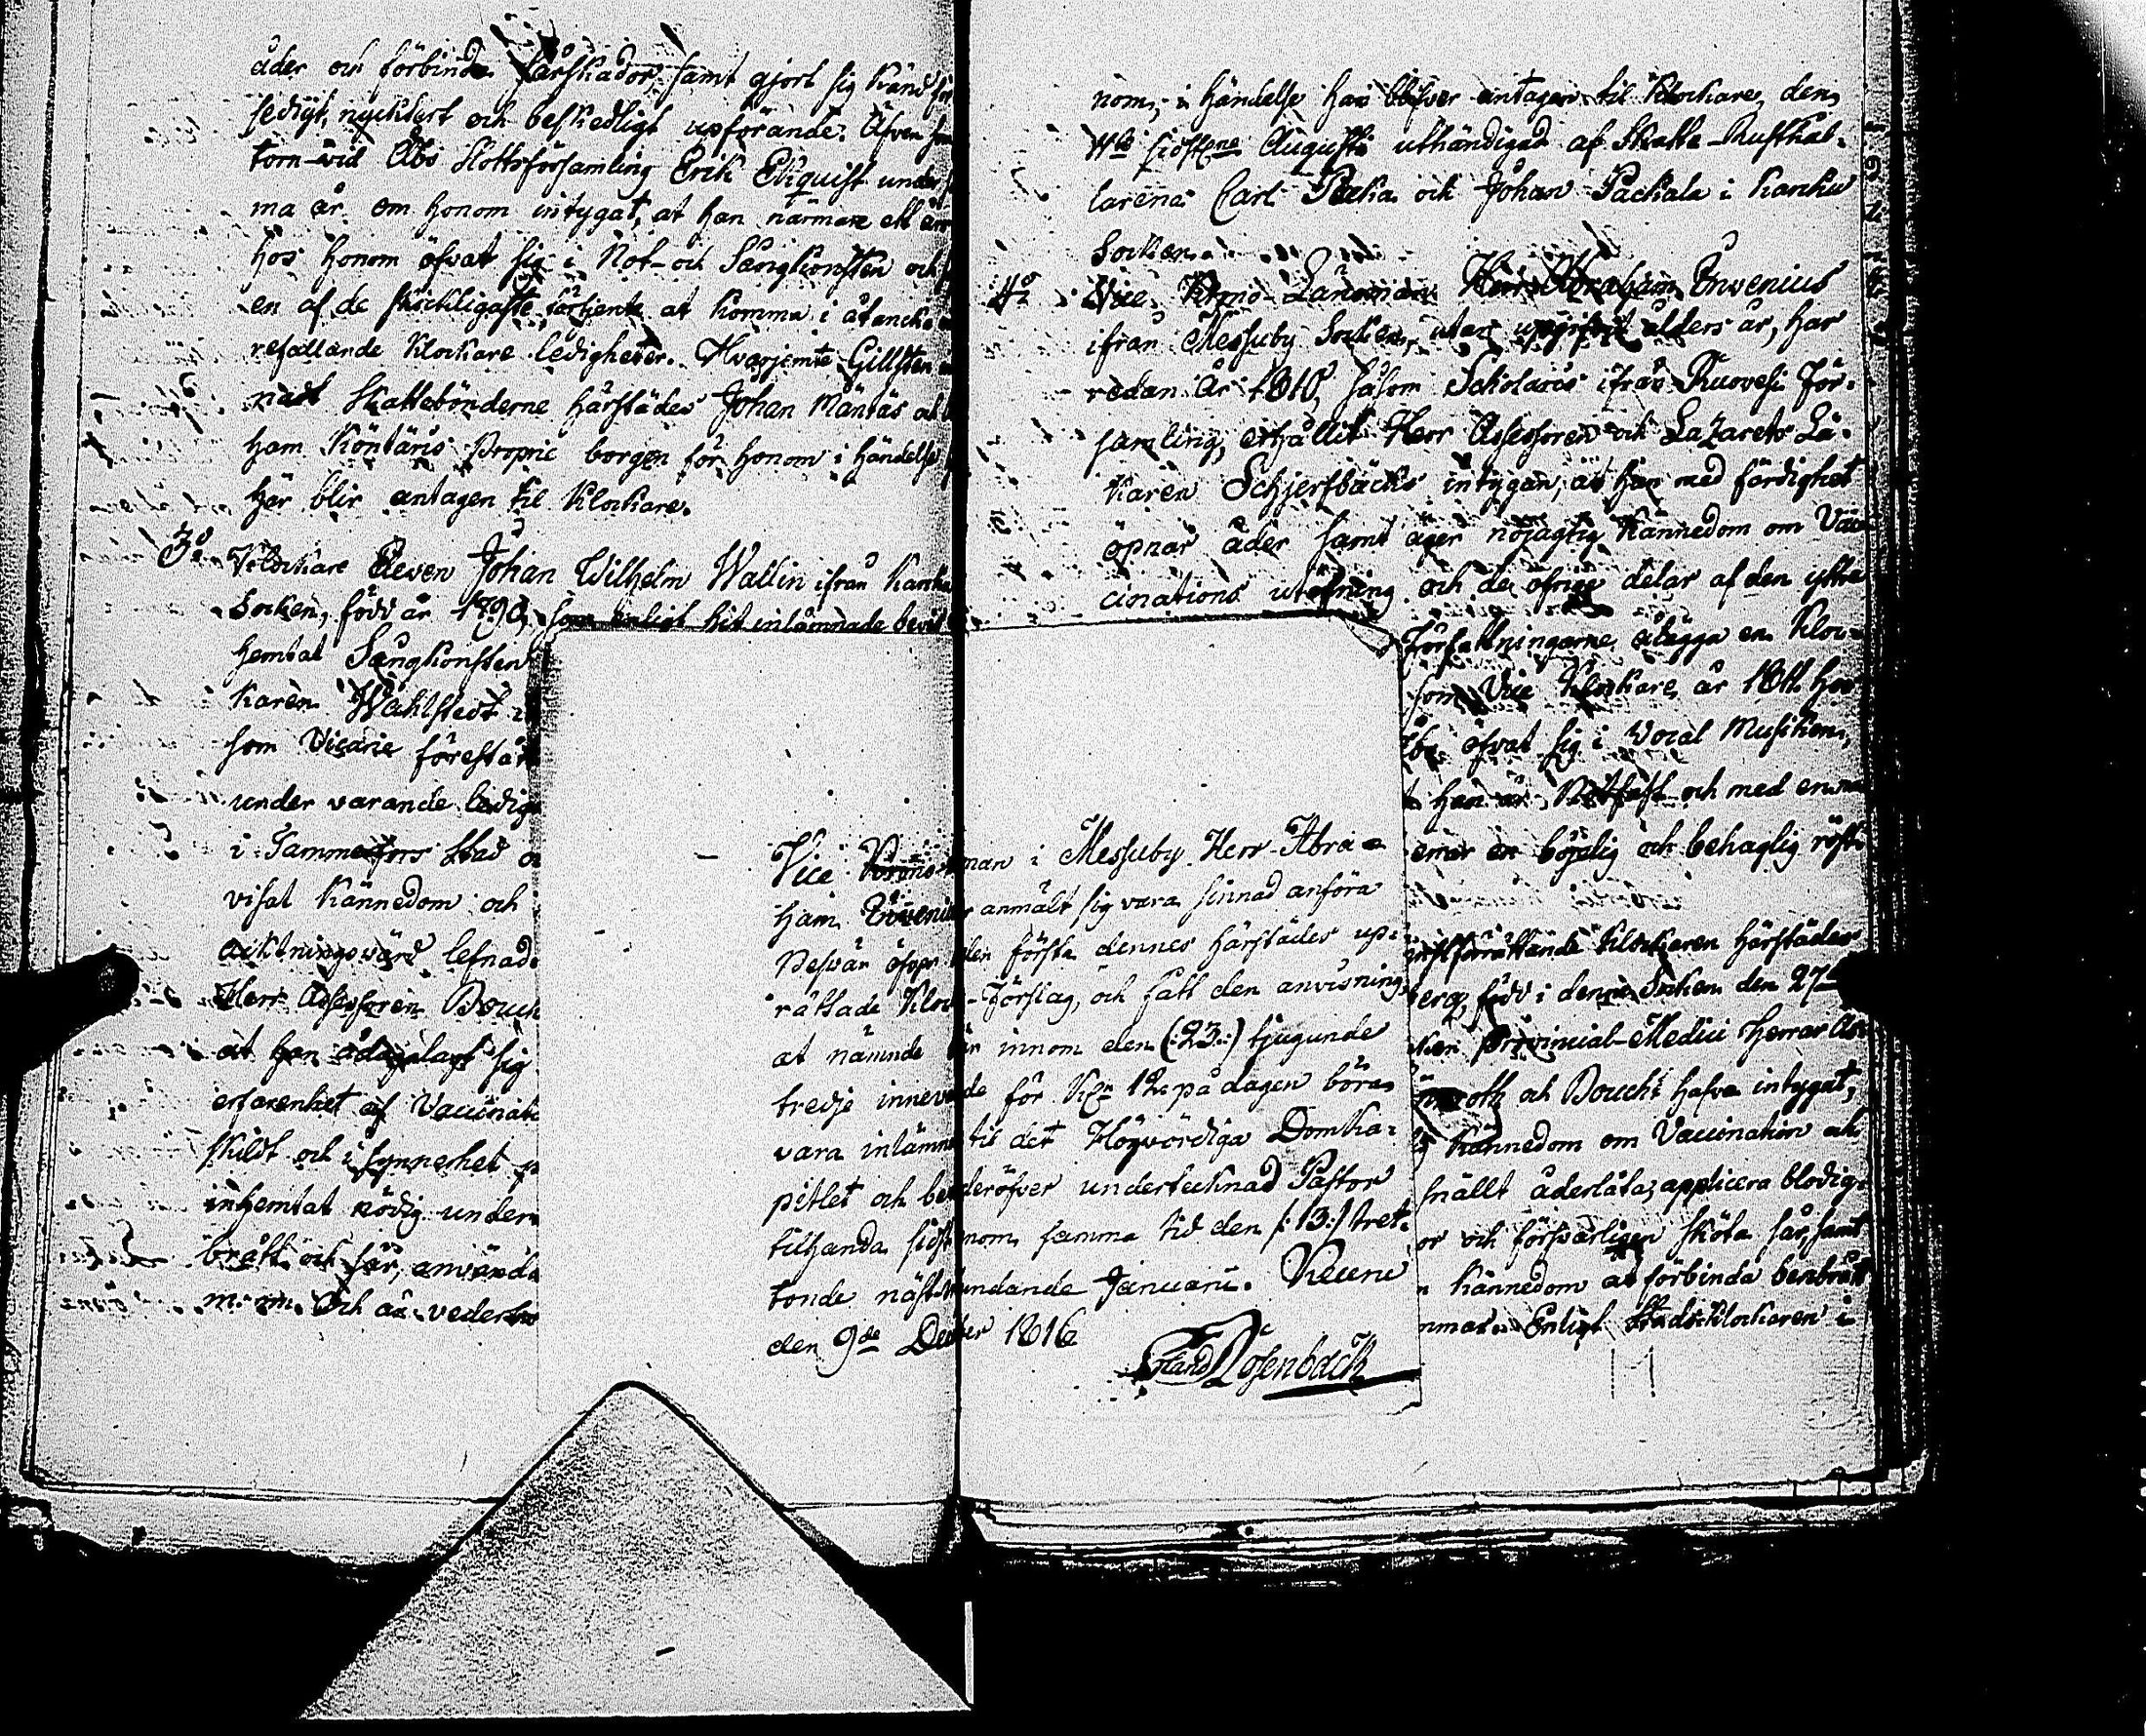 åder och förbinda sårskador samt gjort sig känd för
sedigt, nycktert och beskedligt upförande. Äfven
torn vid Åbo Slottsförsamling Erik Ekquist under
ma år om honom intygat, at han närmare ett år
hos honom öfvat sig i Not- och Sångkonsten och
en af de skickligaste förtjente at komma i åtancka
refallande Klockare ledigheter. Hvarjemte Gillsten
nadt Skattebönderne härstädes Johan Mäntäs och
ham Köntäris Proprie borgen för honom i händelse
här blir antagen til Klockare.
3o Klockare Eleven Johan Wilhelm Wallin ifrån Karku
Socken, född år 1790, som enligt hit inlämnade bevis
hemtat Sångkonsten
karen Wahlstedt
som Vicarie förestår
under varande ledig
i Tammerfors Stad
visat kännedom och
acktningsvärd lefnad
Herr Assessoren Bouch
at han ådagalagt sig
erfarenhet af Vaccinat
skildt och i synnerhet
inhemtat nödig under
brått och sår, använda
m. m. och

nom, i händelse han blifver antagen til Klockare, den
sidstl:ne Augusti uthändigad af Skatte-Rusthål-
larena Carl Packa och Johan Packala i Karku
Socken.
4o Vice Krono-Länsman Herr Abraham Enwenius
ifrån Messuby Socken, utan upgifvit ålders år, har
redan år 1810, såsom Scholaris ifrån Ruovesi För-
samling, erhållit Herr Assessoren och Lazarets Lä-
karen Schjerfbäcks intygan, at han med färdighet
öpnar åder samt äger nöjagtig kännedom om Vac-
cinations utöfning och de öfrige delar af den yttre
Författningarne ålägga en Kloc-
som Vice Klockare, år 1811 hos
öfvat sig i Vocal Musiken,
han är Notfast och med en
en böjelig och behaglig röst.
förrättande Klockaren härstädes
berg, född i denne Socken den 27
Provincial-Medici Herrar
och Boucht hafva intygat,
kännedom om Vaccination och
snällt åderlåta, applicera blodig-
or och försvarligen sköta sår, samt
kännedom at förbinda benbrått
Enligt Stadsklockaren i

Vice Krono-man i Messuby Herr Abra-
ham Enwenius anmält sig vara sinnad anföra
Besvär öfver den första dennes härstädes up-
rättade Klock-Förslag, och fått den anvisning,
at nämnde innom den (:23:) tjugunde
tredje inneva de för Kl. 12 på dagen böra
vara inlämn til det Högvördiga Domka-
pitlet och be deröfver undertecknad Pastor
tilhanda sidst innom samma tid den (:13:) tret-
tonde nästkundande Januarii. Keuru
den 9de December 1816
Erland Rosenback